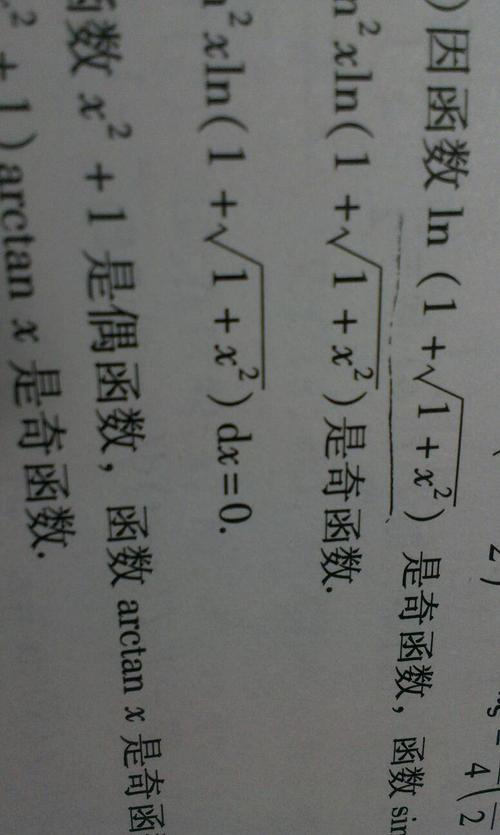 ) 因函数 ln (1 + √(1 + x²)) 是奇函数, 函数 sin
n² x ln(1 + √(1 + x²)) 是奇函数.
n² x ln(1 + √(1 + x²)) dx = 0.
函数 x² + 1 是偶函数, 函数 arctan x 是奇函
² + 1) arctan x 是奇函数.